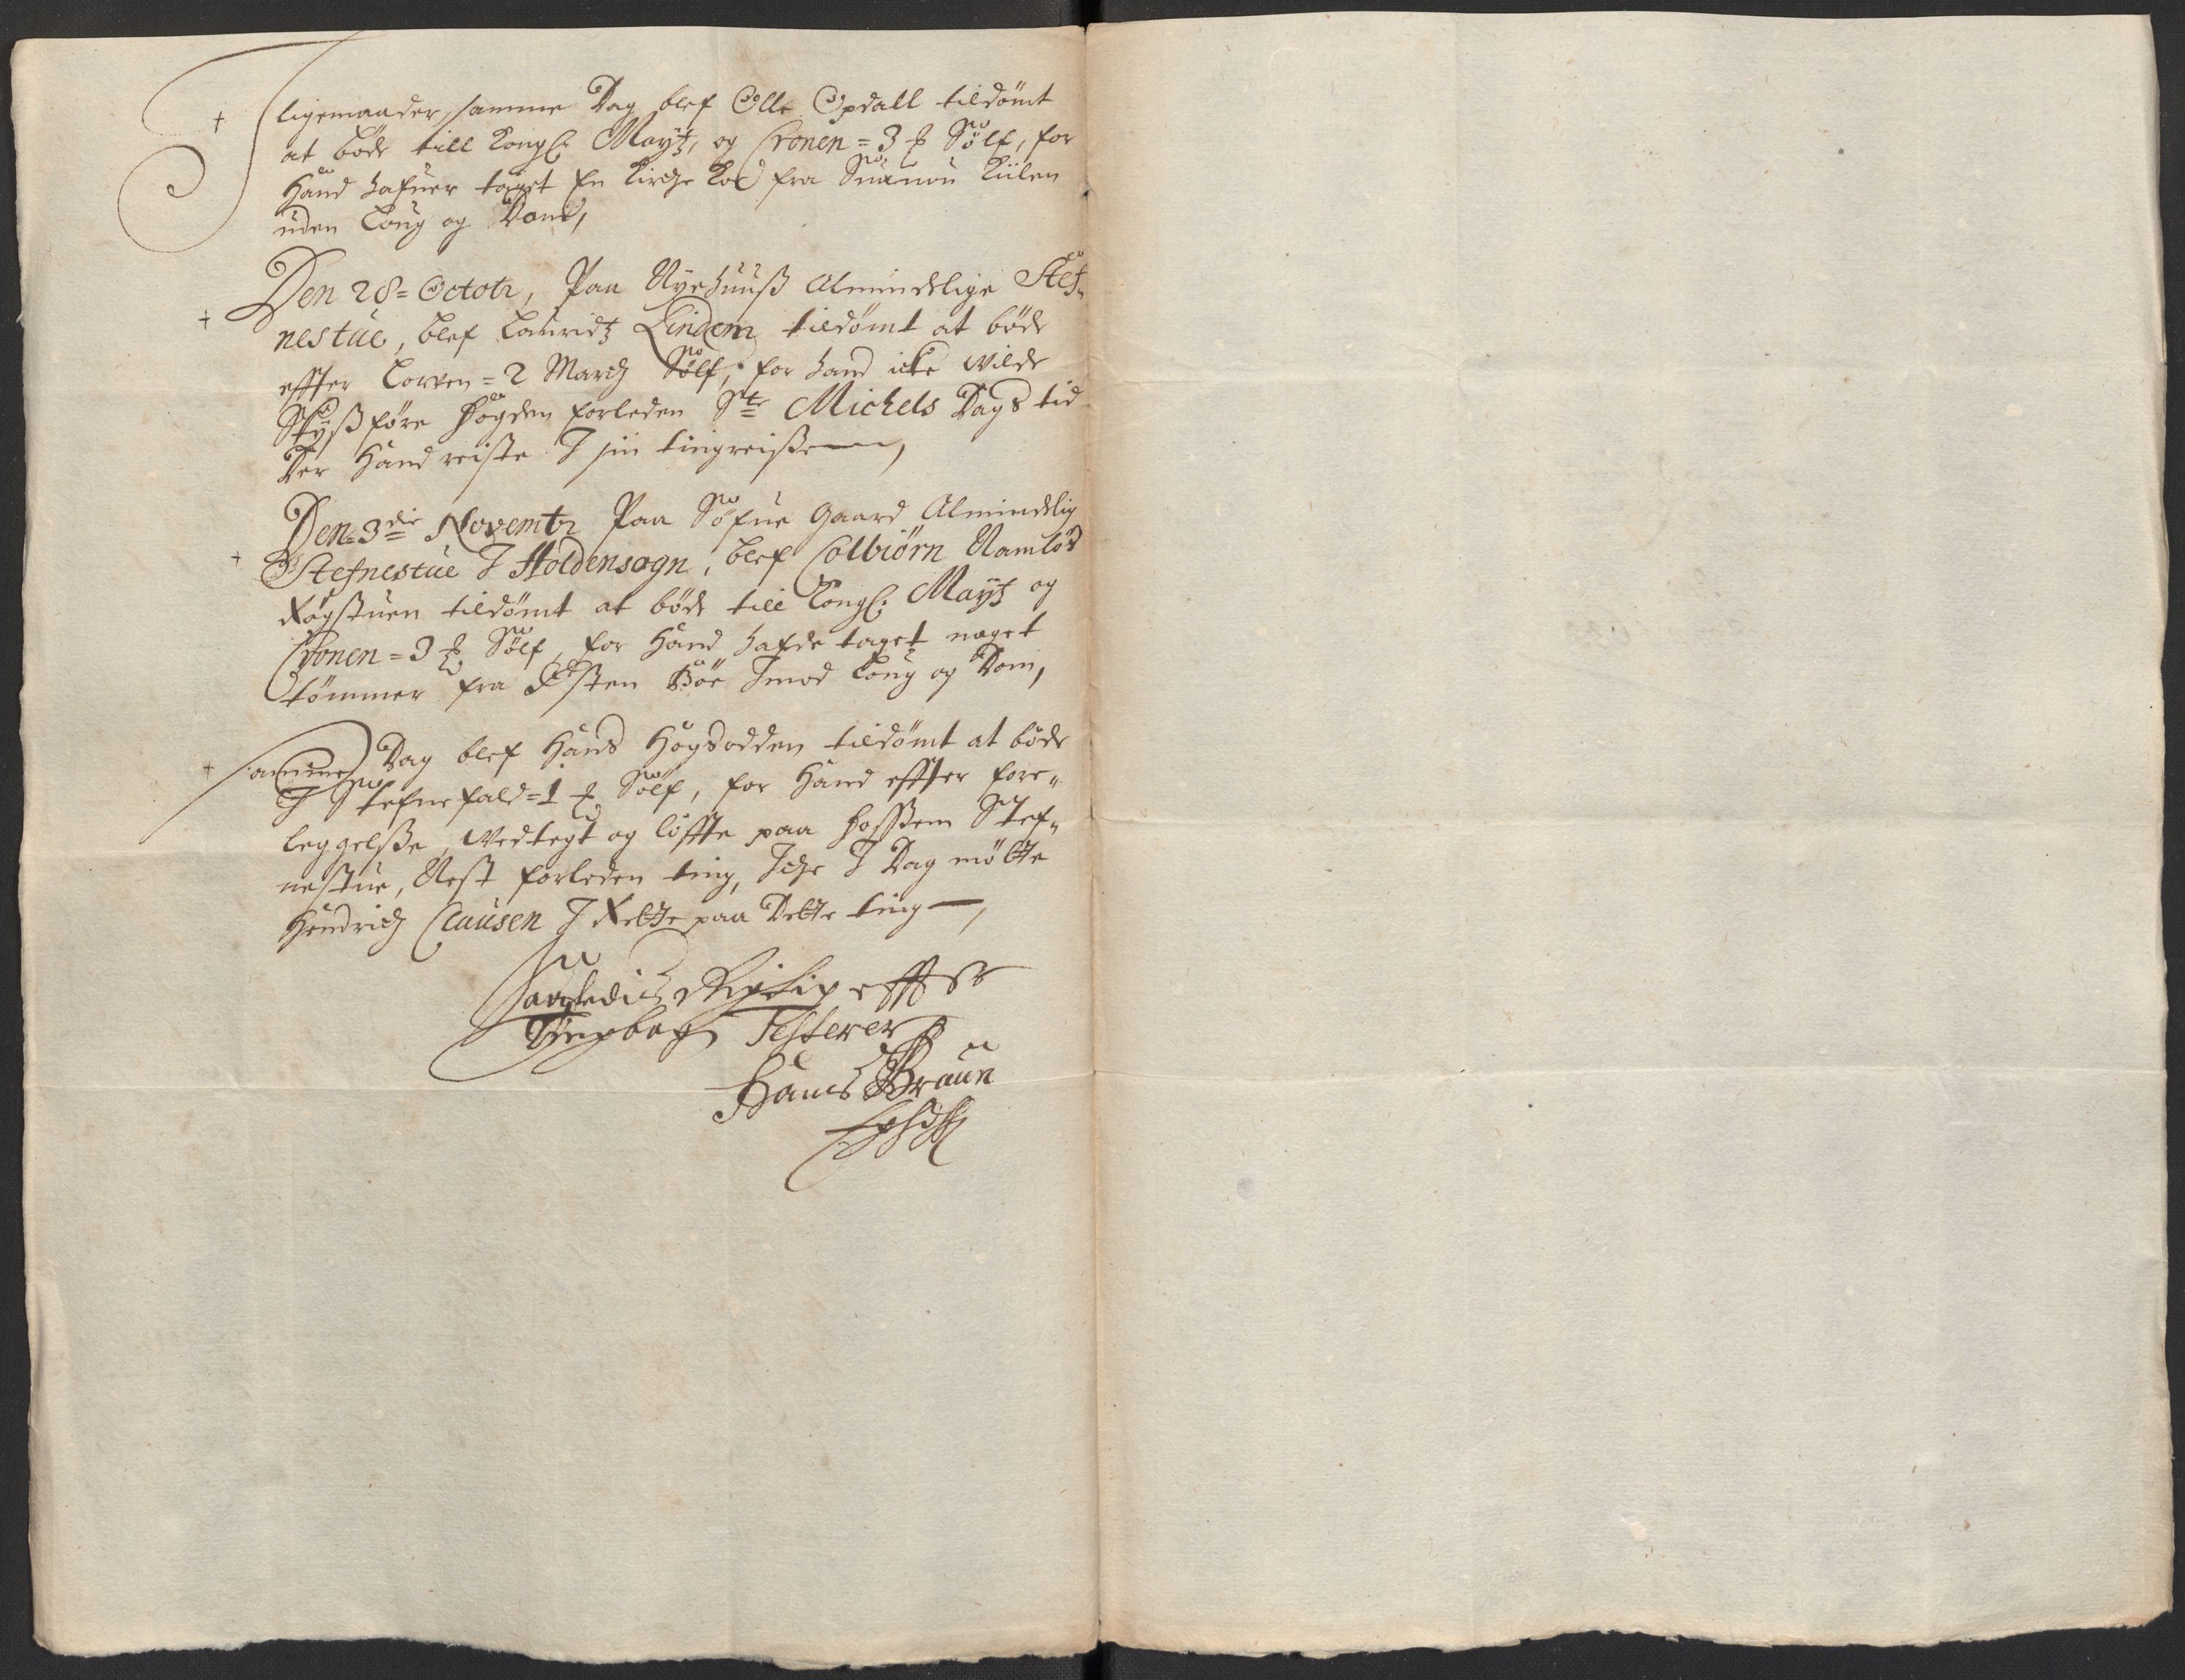 † I ligemaader, samme Dag blef Olle Opdall tildømt
at bøde till Kongl: Maytz, og Cronen = 3 ℔ Sølf, for
Hand hafuer taget En Kirche Koe fra Suanou Kiilen
uden Loug og Dom,
Den 28= Octobr, Paa Nyehuuß Almindelige Stef-
† nestue, blef Lauridtz Lindem tildømt at bøde
effter Loven = 2 March Sølf, for hand icke wilde
Skyßføre fogden forleden Ste Michels Dags tid
Der Hand reiste I sin tingreiße,
Den 3die Novembr Paa Søfue Gaard Almindelig
† Stefnestue I Holdensogn, blef Colbiørn Namløs
Røgstuen tildømt at bøde till Kongl: Maytz og
Cronen = 3 ℔ Sølf, for Hand hafde taget noget
tømmer fra Østen Bøe Imod Loug og Dom,
† samme Dag blef Hans Høgsodden tildømt at bøde
I Stefnefald = 1 ℔ Sølf, for Hand effter fore-
leggelße, Vedtegt og løffte paa Hoßem Stef-
nestue, Nest forleden ting, Iche I Dag møtte
Hendrich Clausen I Rette paa Dette ting,
Saaledis Rigtig effter
Tingbogen Testerer
Hans Braun